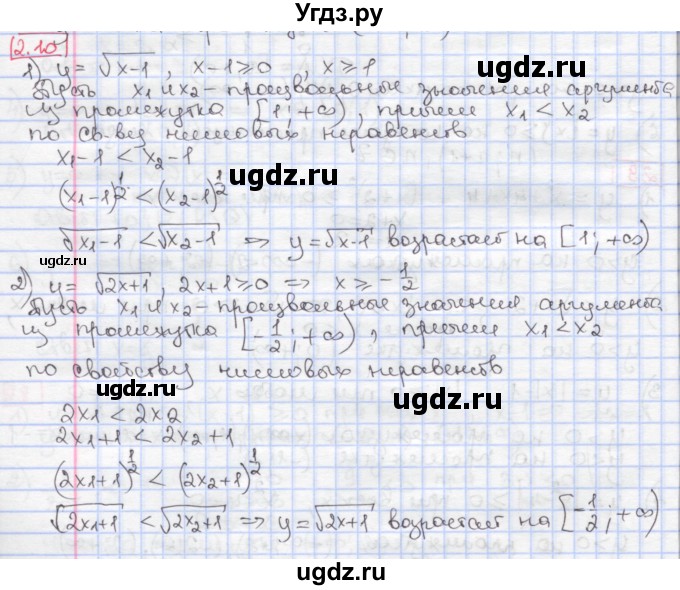 Угдз.ру
2.10
1) y = √x-1 , x-1≥0 , x≥1
Пусть x₁ и x₂ - произвольные значения аргумента
из промежутка [1; +∞), причем x₁ < x₂
по св-ву числовых неравенств
x₁-1 < x₂-1
ugdz.ru
ugdz.ru
(x₁-1)^½ < (x₂-1)^½
√x₁-1 < √x₂-1 ⇒ y=√x-1 возрастает на [1; +∞)
ugdz.ru
2) y = √2x+1 , 2x+1≥0 ⇒ x ≥ -1/2
Пусть x₁ и x₂ - произвольные значения аргумента
из промежутка [-1/2; +∞), причем x₁<x₂
по свойству числовых неравенств
ugdz.ru
ugdz.ru
2x₁ < 2x₂
2x₁+1 < 2x₂+1
(2x₁+1)^½ < (2x₂+1)^½
ugdz.ru
√2x₁+1 < √2x₂+1 ⇒ y=√2x+1 возрастает на [-1/2; +∞)
ugdz.ru